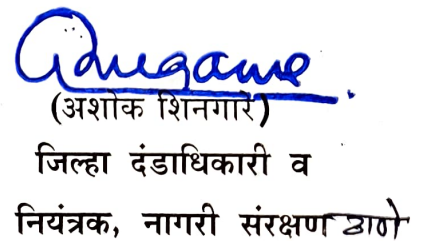 (अशोक शिनगारे)
जिल्हा दंडाधिकारी व
नियंत्रक, नागरी संरक्षण ठाणे